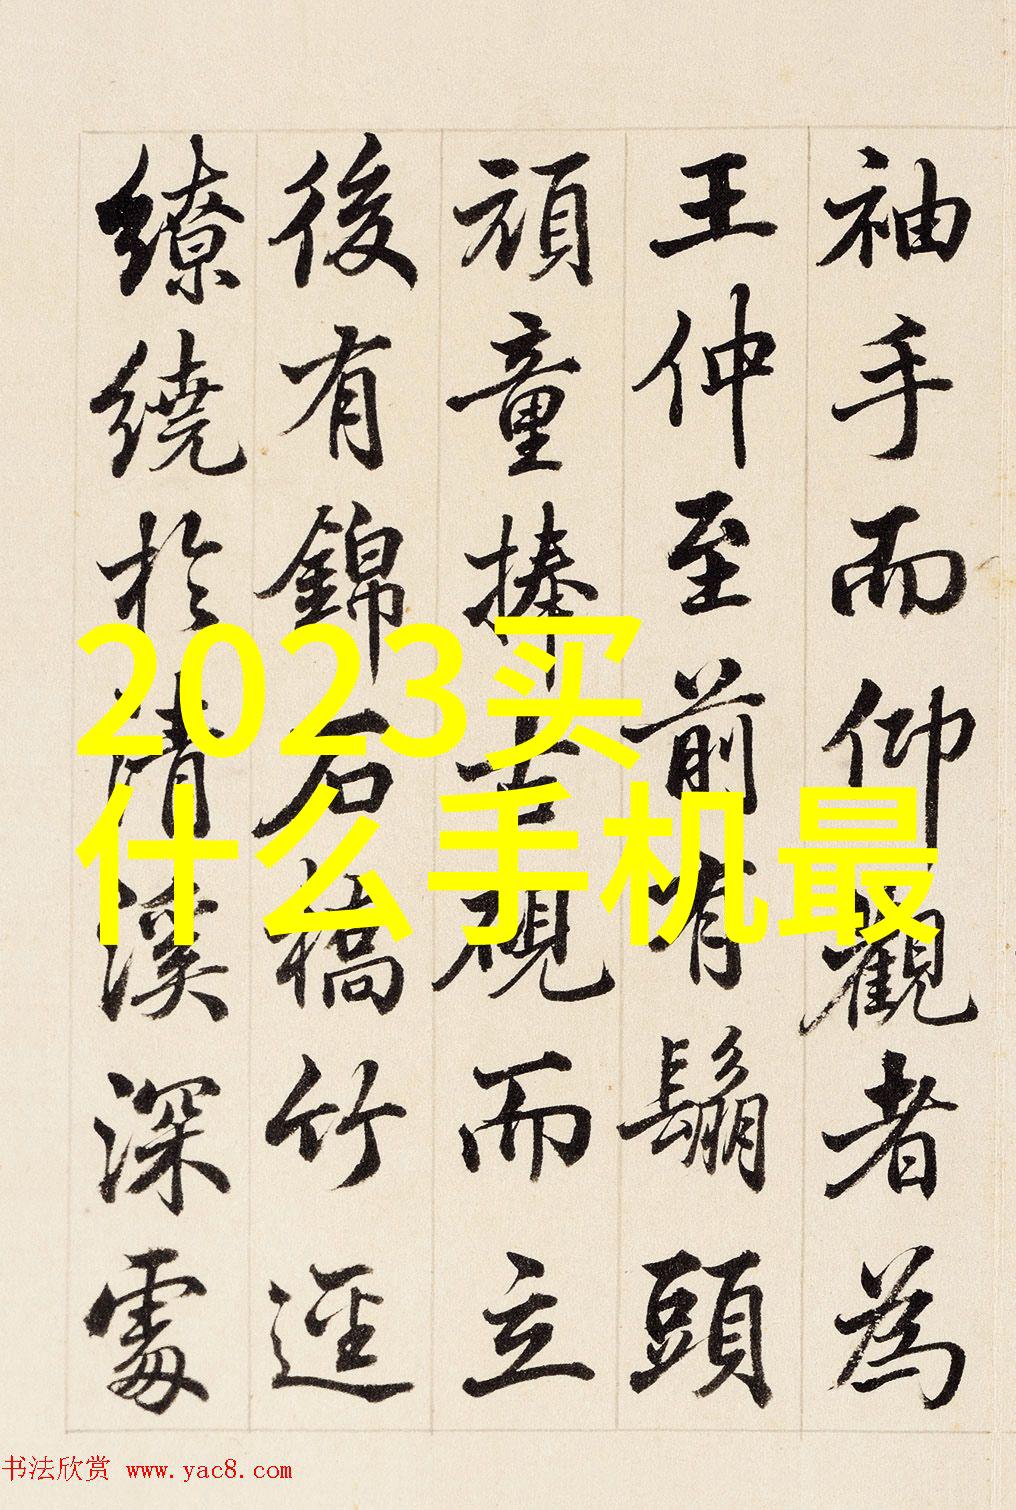 袖手而仰觀者為
王仲至前有鬅頭
頑童捧古硯而立
後有錦石橋竹逕
繚繞於清溪深處
2023买
什么手机最
书法欣赏 www.yac8.com